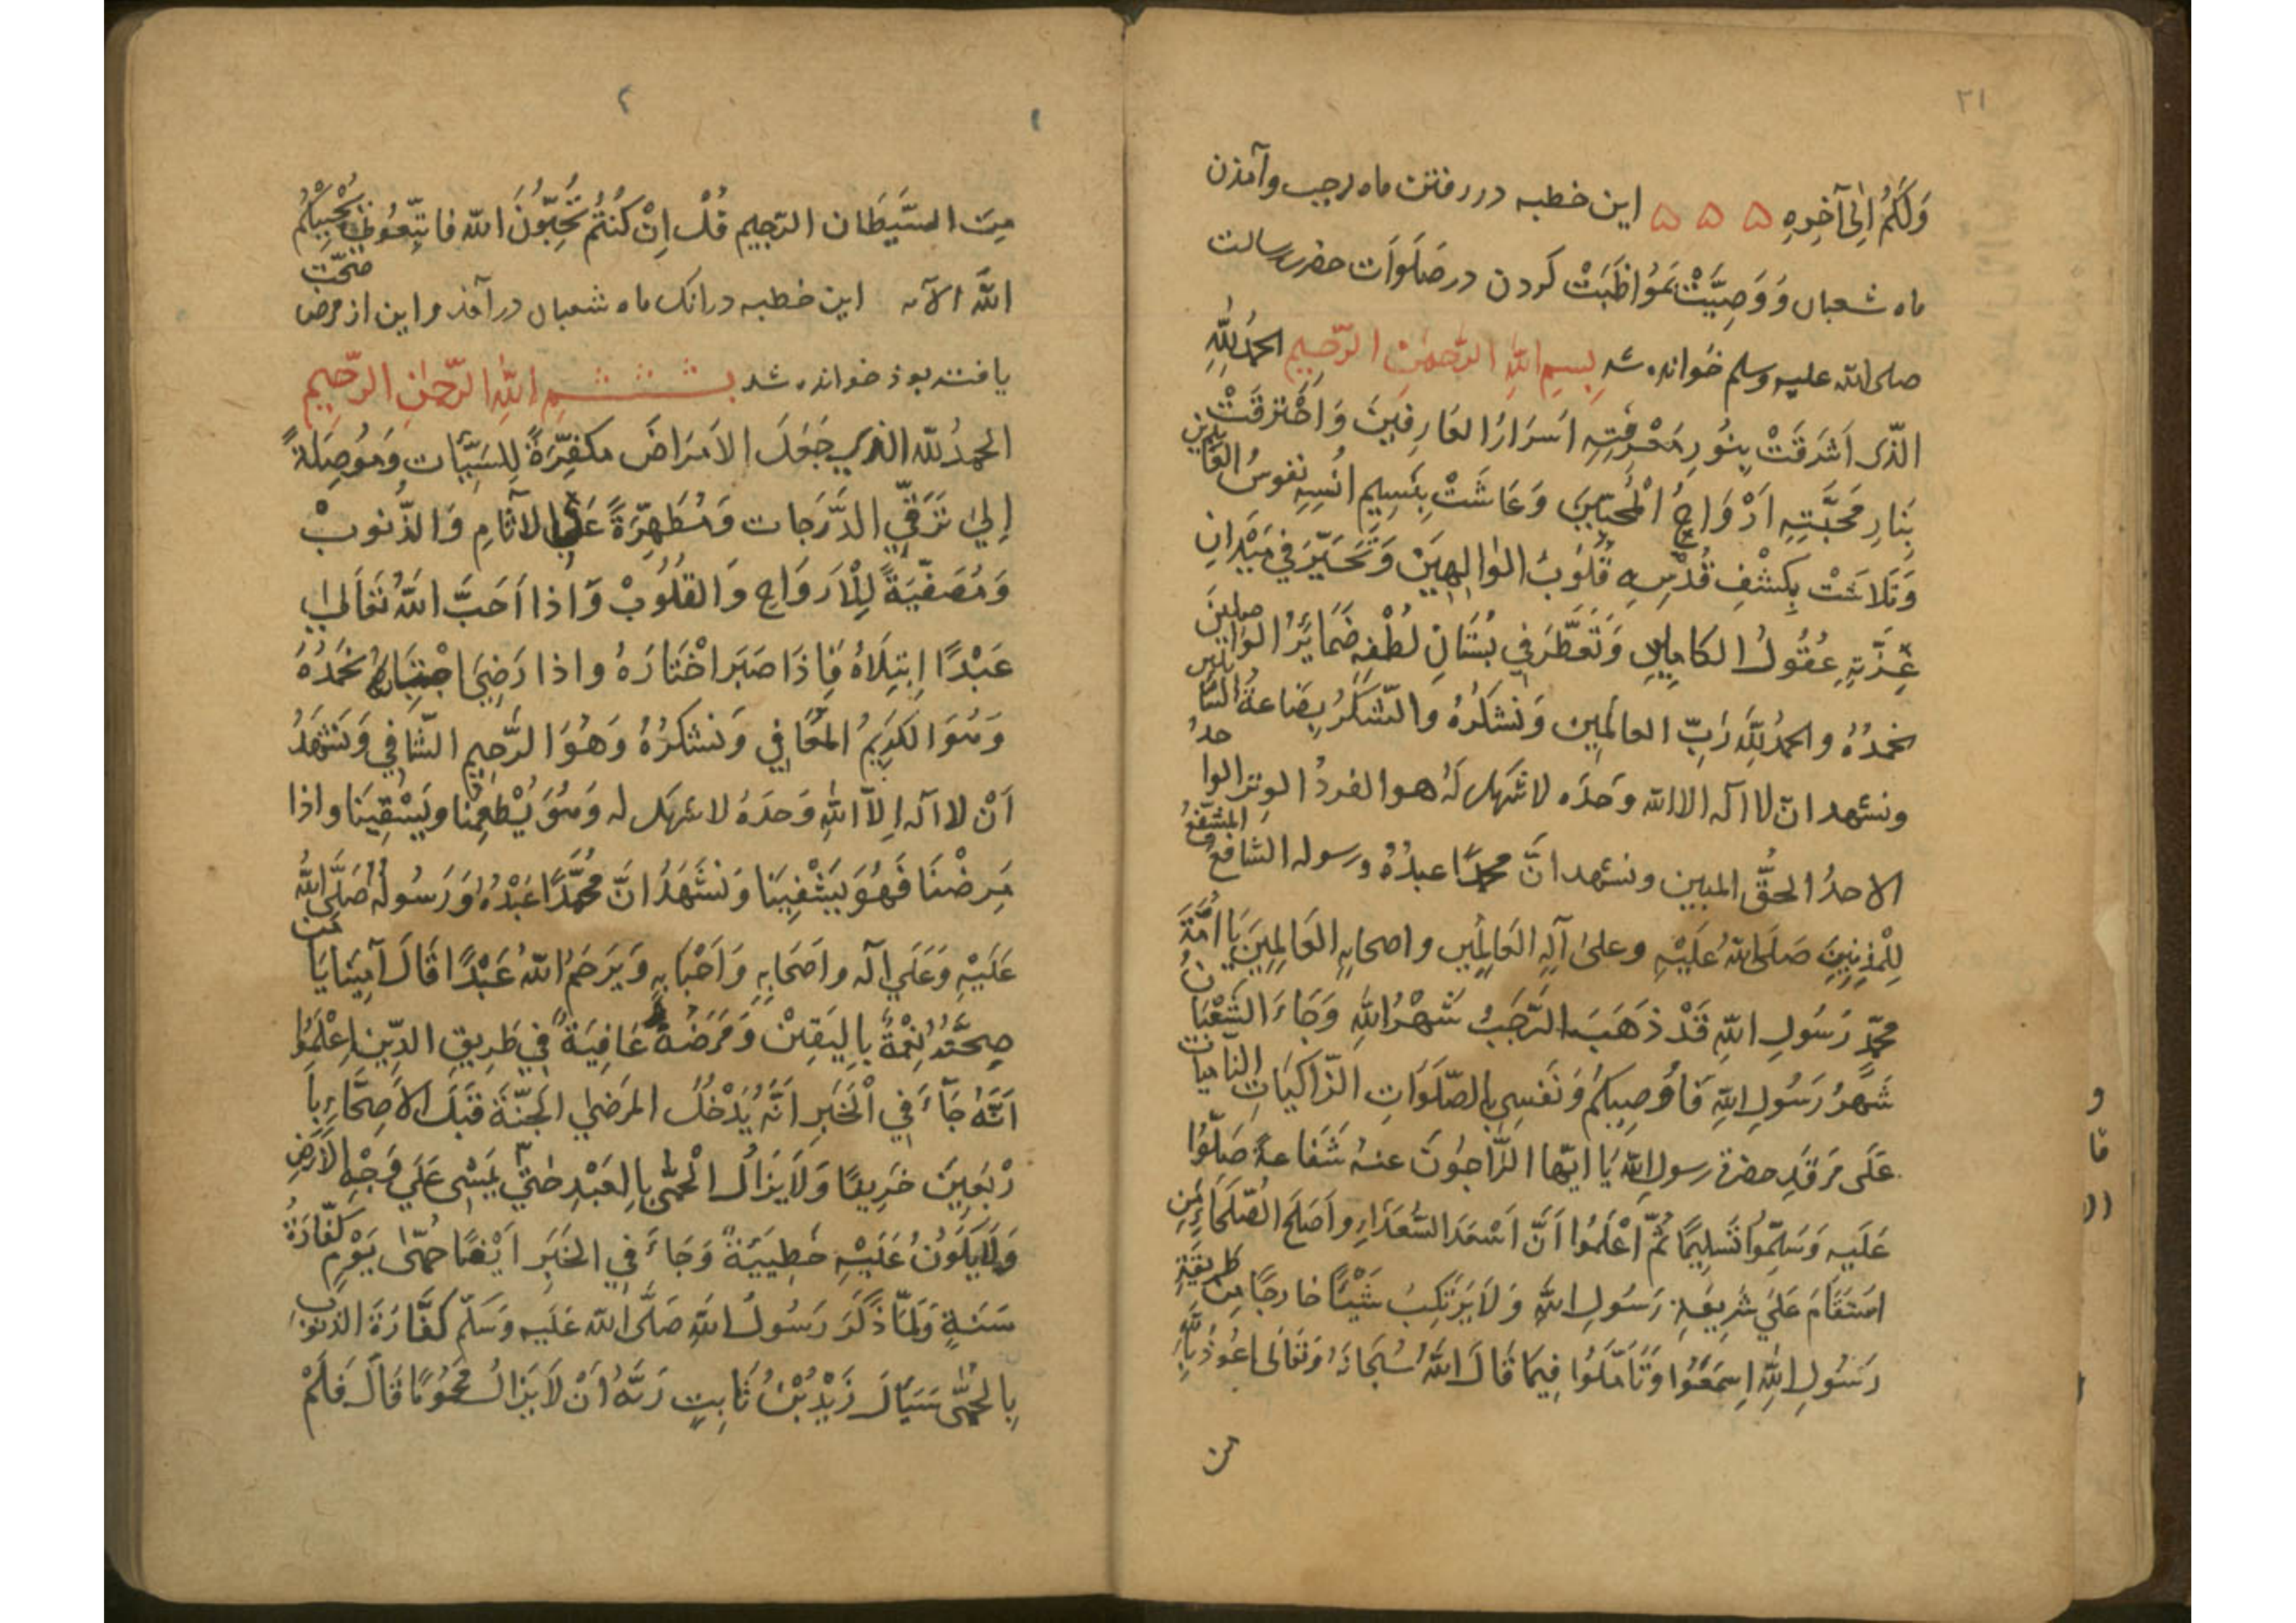 ٢١
وَلَكُمْ اِلٰی آخِرِهِ ۵ ۵ ۵ این خطبه در رفتن ماه رجب و آمذن
ماه شعبان وَ وَصِیَّتْ بَمُوَاظَبَتْ کردن در صَلَوَات حضرت رسالت
صلی الله علیه وسلم خوانده شد بِسمِ اللهِ الرَّحمٰنِ الرَّحِیمِ الحمدُ لِلّٰهِ
الذّی اَشرَقَتْ بِنُورِ مَعْرِفَتِهِ اَسرَارُ العَارِفِینَ وَ احْتَرَقَتْ
بِنَارِ مَحَبَّتِهِ اَرْوَاحُ الْمُحِبِّینَ وَعَاشَتْ بِنَسِیمِ اُنسِهِ نفوسُ العَابدین
وَتَلَاشَتْ بِکَشْفِ قُدْسِهِ قُلُوبُ الوَالِهِینَ وَتَحَیَّرَ فِی مَیْدَانِ
عِزَّتِهِ عُقُولُ الکامِلِین وَتَعَطَّرَ فِی بُستَانِ لُطْفِهِ ضَمَایرُ الوَاصلینَ
نحمدُهُ والحمدُ لِلّٰهِ رَبِّ العالَمِین وَنَشکُرُهُ والشُّکرُ بِضَاعةُ الشاکرین
ونشهد انّ لا اله الا الله وَحدَه لا شریک لَهُ هو الفردُ الوِترُ الواحدُ
الاحدُ الحقُّ المبین ونشهد انَّ محمدًا عبدُهُ ورسوله الشافعُ المشفّعُ
لِلْمُذنِبِینَ صَلَی اللهُ عَلَیْهِ وعلیٰ آلِهِ العَالِمِین واصحابِهِ العَالِمِینَ یَا اُمَّةَ
محمّدٍ رَسُولِ اللهِ قَدْ ذهَبَ الرَّجَبُ شَهْرُ اللهِ وَجَاءَ الشَّعْبَانُ
شَهرُ رَسُولِ اللهِ فَاُوصِیکُم وَنَفسِی بِالصّلَوَاتِ الزّاکِیَاتِ النّامیات
عَلَی مَرقَدِ حضرة رسولِ اللهِ یَا ایّها الرَّاجُونَ عنهُ شَفَاعةً صَلّوُا
عَلَیهِ وَسَلِّمُوا تَسلِیمًا ثُمَّ اعْلَمُوا اَنَّ اَسْعَدَ السُّعَدَاءِ واَصلَحَ الصُّلَحَاءِ مَن
استَقَامَ عَلَی شَریعَةِ رَسُولِ اللهِ وَلَا یَرتَکِبُ شَیْئًا خارجًا مِن طریقَةِ
رَسُولِ اللهِ اِسمَعُوا وَتَأَمَّلُوا فِیمَا قَالَ اللهُ سُبحَانَهُ وَتعَالی اعُوذُ بِاللهِ
من
٢
مِنَ الشَّیطَان الرّجیم قُلْ اِنْ کُنتُم تُحِبُّونَ الله فاتّبِعُونِی یُحْبِبْکُمُ
اللهُ الآیه این خطبه در انک ماه شعبان در آمذ و این از مرض صحّت
یافته بوذ خوانده شد بسمِ اللهِ الرّحمٰنِ الرّحِیمِ
الحمدُ للهِ الذی جَعَلَ الاَمرَاضَ مُکَفِّرَةً لِلسَیِّئَاتِ وَمُوصِلَةً
اِلی تَرَقِّی الدَّرَجات وَمُطَهِّرَةً عَنِ الآثَامِ وَالذُّنُوبْ
وَمُصَفِّیَةً لِلْاَروَاحِ وَالقُلُوبْ وَاذا اَحَبَّ اللهُ تَعَالیٰ
عَبْدًا اِبتِلَاهُ فَاِذَا صَبَرَ اخْتَارَهُ واذا رَضِیَ اجْتَبَاهُ نَحمَدُهُ
وَهُوَ الکَرِیمُ المُعَافِی وَنشکُرُهُ وَهُوَ الرَّحِیمِ الشَّافِی وَنَشهَدُ
اَنْ لا اله اِلاّ اللهِ وَحدَهُ لا شریک له وَهُوَ یُطْعِمُنا ویَسْقِینَا واذا
مَرِضْنَا فَهُوَ یَشْفِینَا وَنشَهَدُ انَّ مُحمَّدًا عَبْدُهُ وَرَسُولُهُ صَلَّی اللهُ
عَلَیْهِ وَعَلَی آله واَصحَابِهِ وَاَحْبَابِهِ وَیَرحَمُ اللهُ عَبْدًا قَالَ آمِینَا یَا مَن
صِحَّتُهُ نِعْمَةٌ بِالیَقِینْ وَمَرَضُهُ عَافِیَةٌ فِی طَرِیقِ الدِّینِ اِعْلَمُوا
اَنَّهُ جَآءَ فِی الْخَبَرِ اَنَّهُ یَدْخُلُ المَرضَی الجَنَّةَ قَبْلَ الاَصِحَّاءِ بِاَ
رْبَعِینَ خَرِیفًا وَلَا یَزَالُ الْحُمَّی بِالعَبْدِ حتّی یَمشِی عَلَی وَجْهِ الاَرضِ
وَلَا یَکُونُ عَلَیْهِ خَطِیئَةٌ وَجَاءَ فِی الخَبَرِ اَیْضًا حُمَّی یَوْمٍ کَفَّارَةُ
سَنَةٍ وَلَمَّا ذَکَرَ رَسُولُ اللهِ صَلَّی الله عَلَیهِ وَسَلّم کَفَّارَةَ الذنوب
بِالحُمَّی سَیَالَ زَیْدُ بْنُ ثَابِتٍ رَبَّهُ اَنْ لَا یَزَالُ مَحْمُومًا قَالَ فَلَمْ